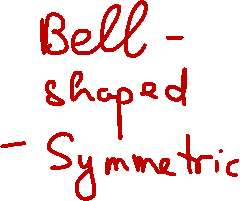 Bell -
shaped
- Symmetric